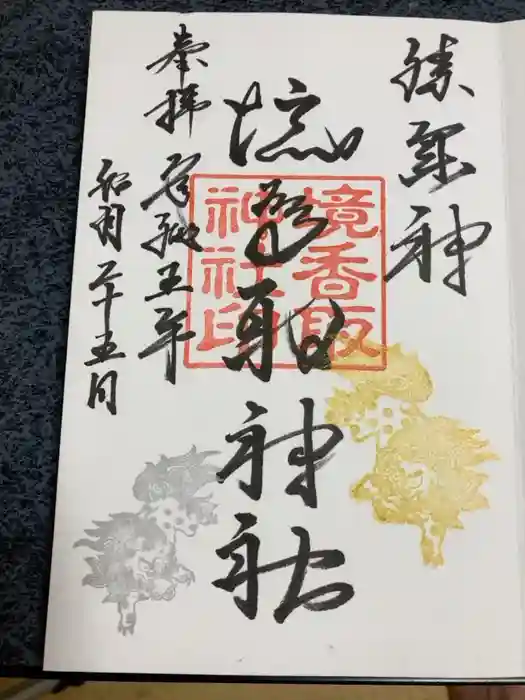 勝軍神
境香取神社
境香取
神社印
奉拝
令和五年
月二十五日